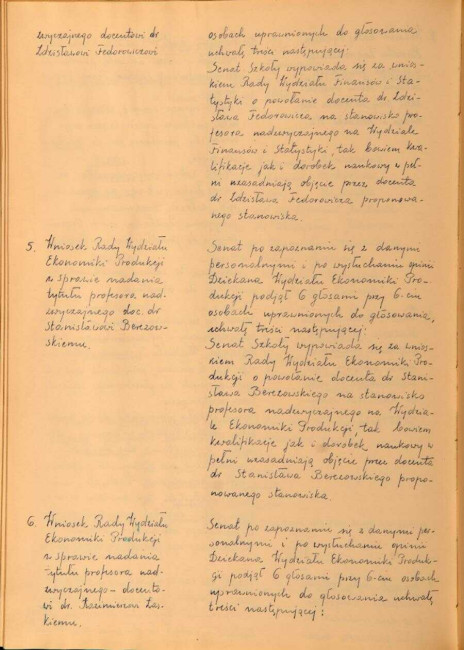 zwyczajnego docentowi dr
Zdzisławowi Fedorowiczowi
osobach uprawnionych do głosowania
uchwałę treści następującej:
Senat Szkoły wypowiada się za wnios-
kiem Rady Wydziału Finansów i Sta-
tystyki o powołanie docenta dr Zdzi-
sława Fedorowicza na stanowisko pro-
fesora nadzwyczajnego na Wydziale
Finansów i Statystyki, tak bowiem kwa-
lifikacje jak i dorobek naukowy w peł-
ni uzasadniają objęcie przez docenta
dr Zdzisława Fedorowicza proponowa-
nego stanowiska.
5. Wniosek Rady Wydziału
Ekonomiki Produkcji
w sprawie nadania
tytułu profesora nad-
zwyczajnego doc. dr
Stanisławowi Berezow-
skiemu.
Senat po zapoznaniu się z danymi
personalnymi i po wysłuchaniu opinii
Dziekana Wydziału Ekonomiki Pro-
dukcji podjął 6 głosami przy 6-ciu
osobach uprawnionych do głosowania,
uchwałę treści następującej:
Senat Szkoły wypowiada się za wnios-
kiem Rady Wydziału Ekonomiki Pro-
dukcji o powołanie docenta dr Stani-
sława Berezowskiego na stanowisko
profesora nadzwyczajnego na Wydzia-
le Ekonomiki Produkcji tak bowiem
kwalifikacje jak i dorobek naukowy w
pełni uzasadniają objęcie przez docenta
dr Stanisława Berezowskiego propo-
nowanego stanowiska.
6. Wniosek Rady Wydziału
Ekonomiki Produkcji
w sprawie nadania
tytułu profesora nad-
zwyczajnego - docento-
wi dr. Kazimierzowi Łas-
kiemu.
Senat po zapoznaniu się z danymi per-
sonalnymi i po wysłuchaniu opinii
Dziekana Wydziału Ekonomiki Produk-
cji podjął 6 głosami przy 6-ciu osobach
uprawnionych do głosowania uchwałę
treści następującej: